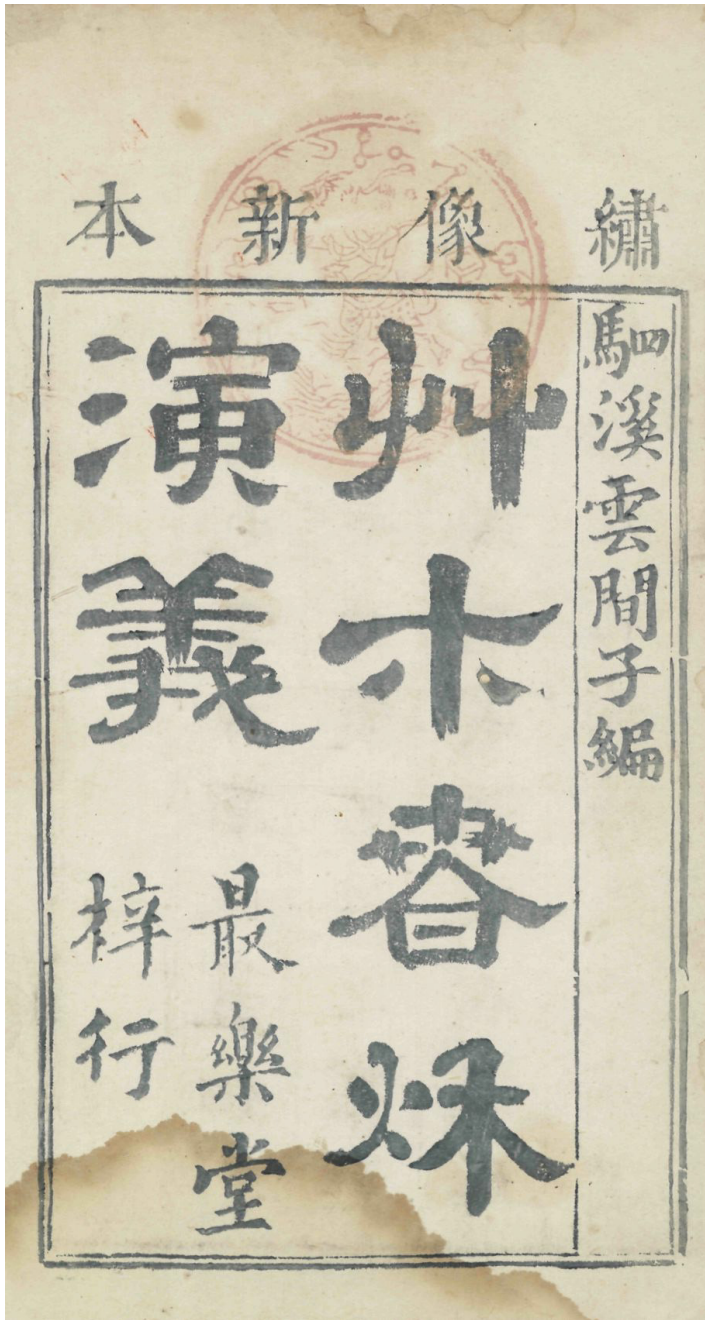 繡像新本
駟溪雲間子編
艸木春秋
演義
最樂堂
梓行